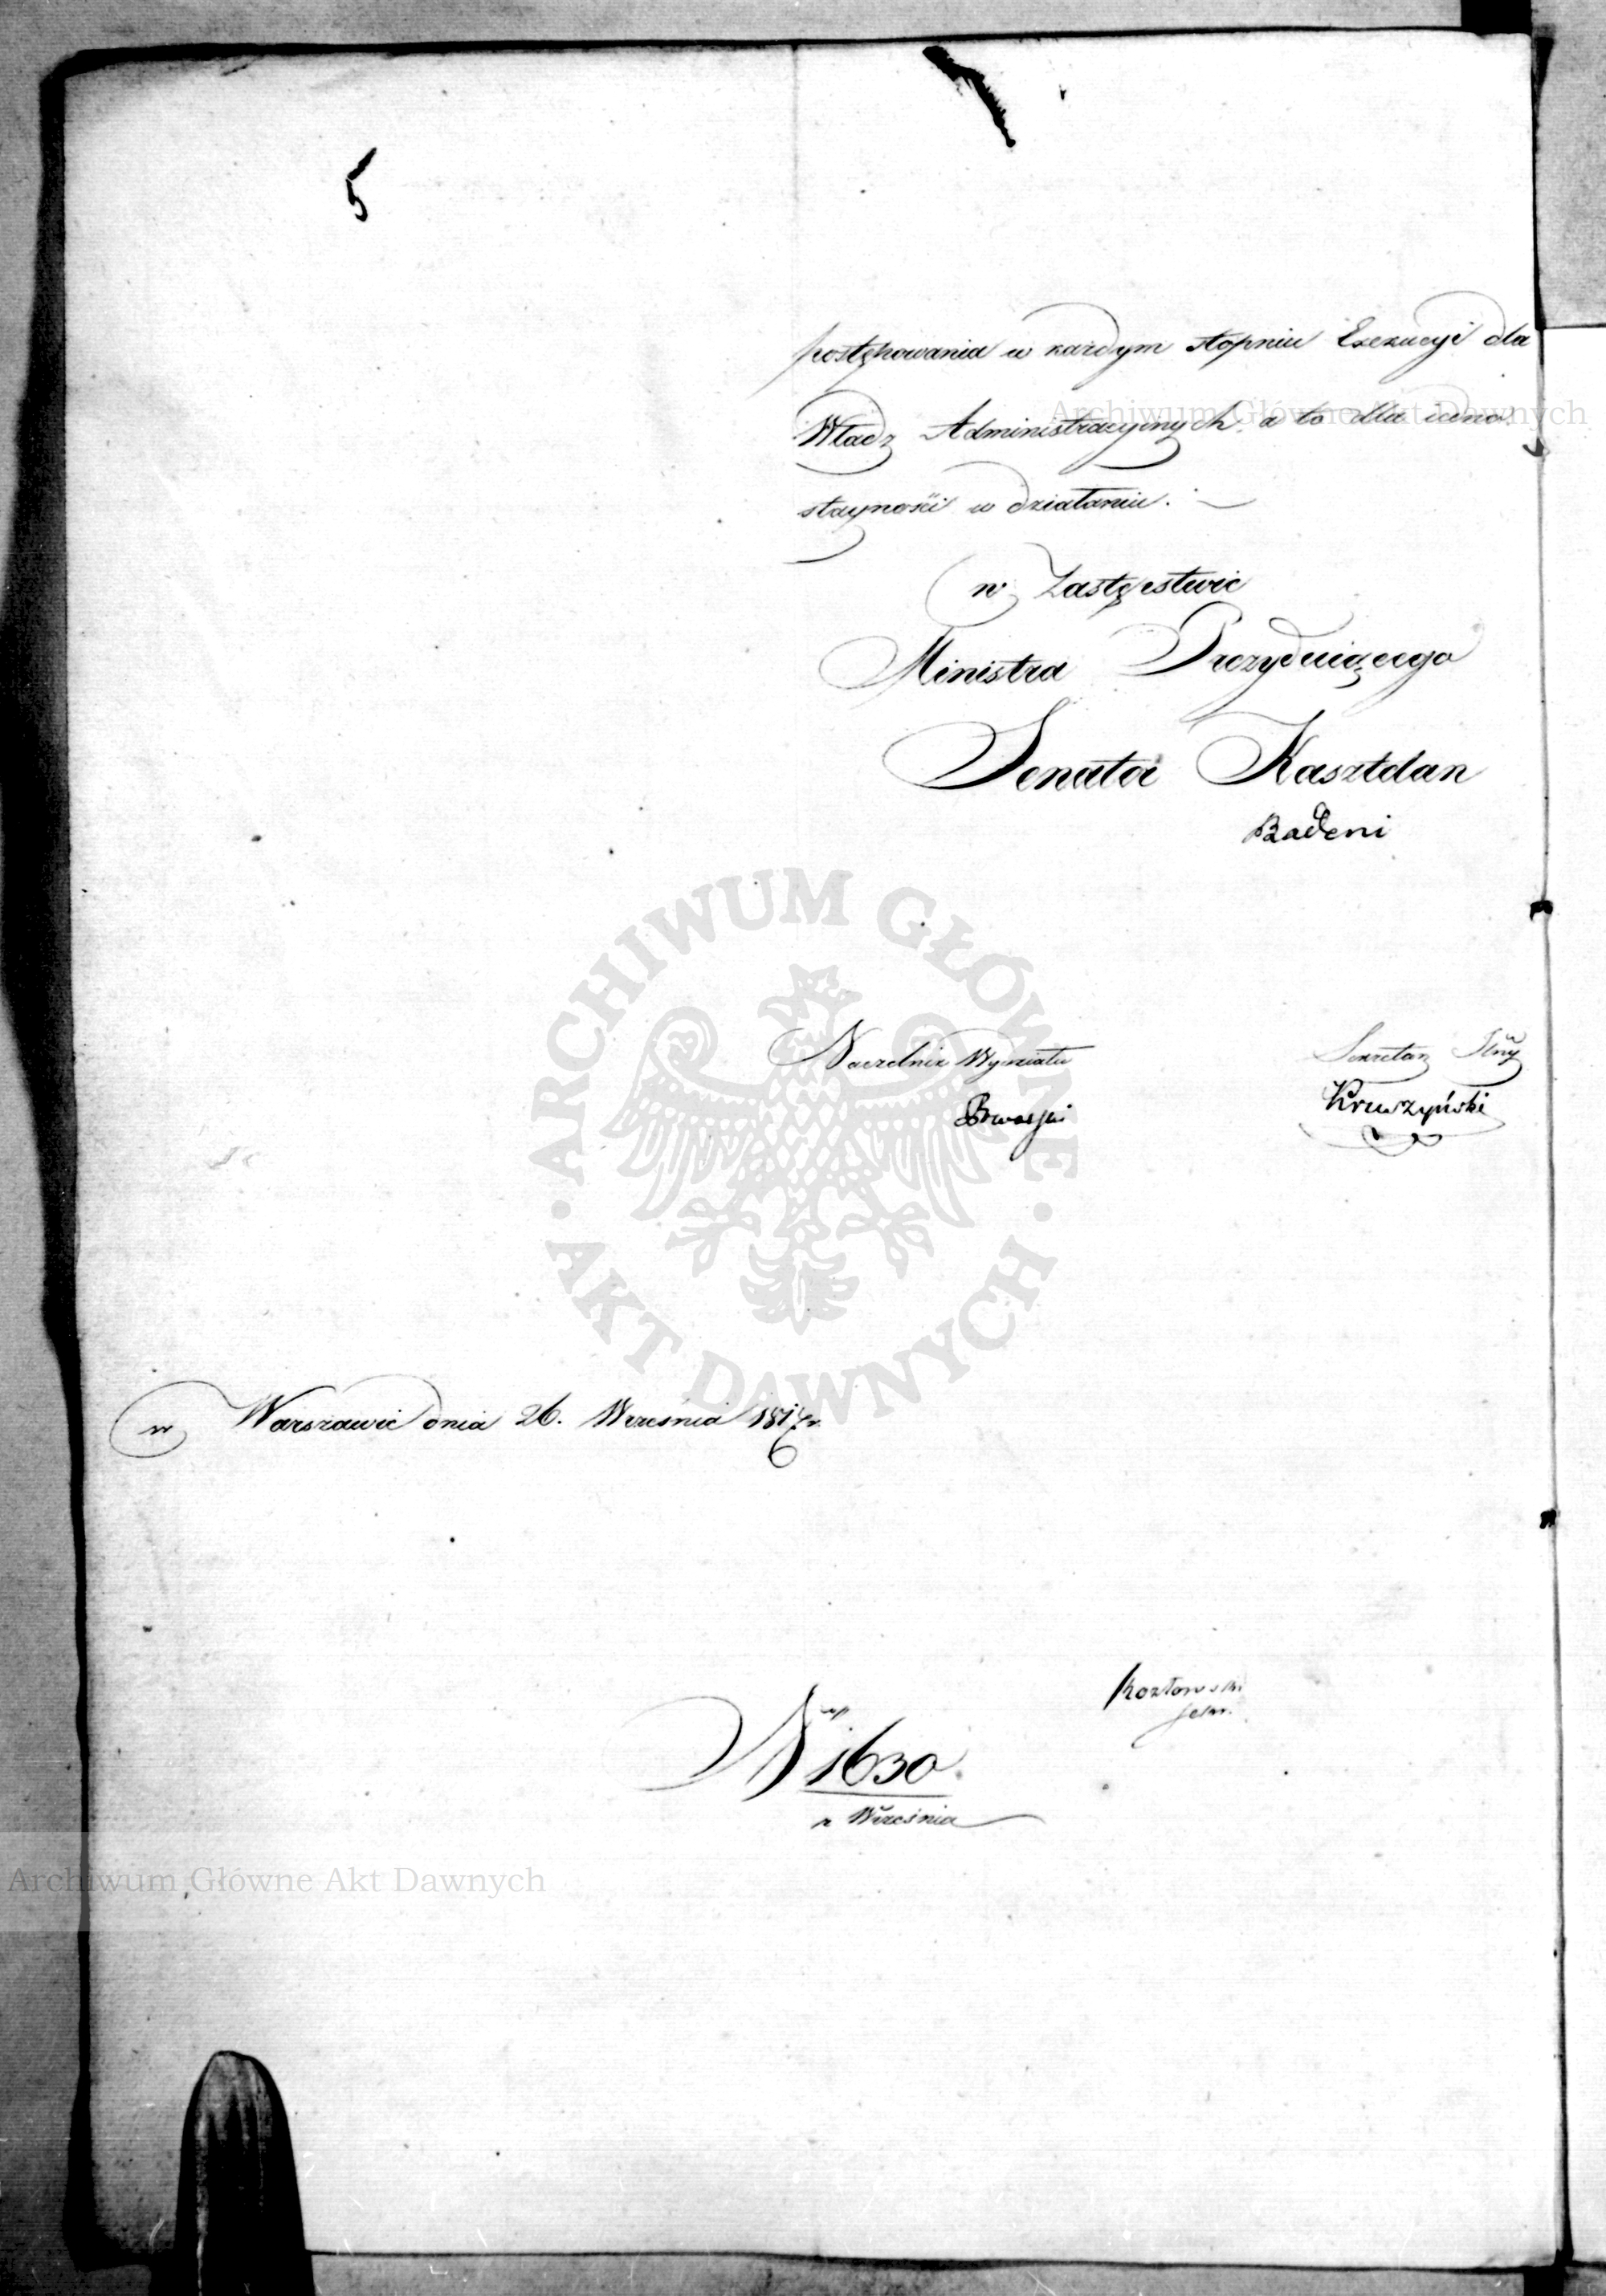 5
postępowania w każdym stopniu Exekucyi dla
Władz Administracyinych a to dla iedno
stayności w działaniu.
w Zastęstwie
Ministra Prezyduiącego
Senator Kasztelan
Badeni
Naczelnik Wydziału
Sekretarz Jlny
Kruszyński
w Warszawie dnia 26. Września 1817 r.
Kozłowski
sekr.
N 1630.
z Września
Archiwum Główne Akt Dawnych
ARCHIWUM GŁÓWNE AKT DAWNYCH
Archiwum Główne Akt Dawnych